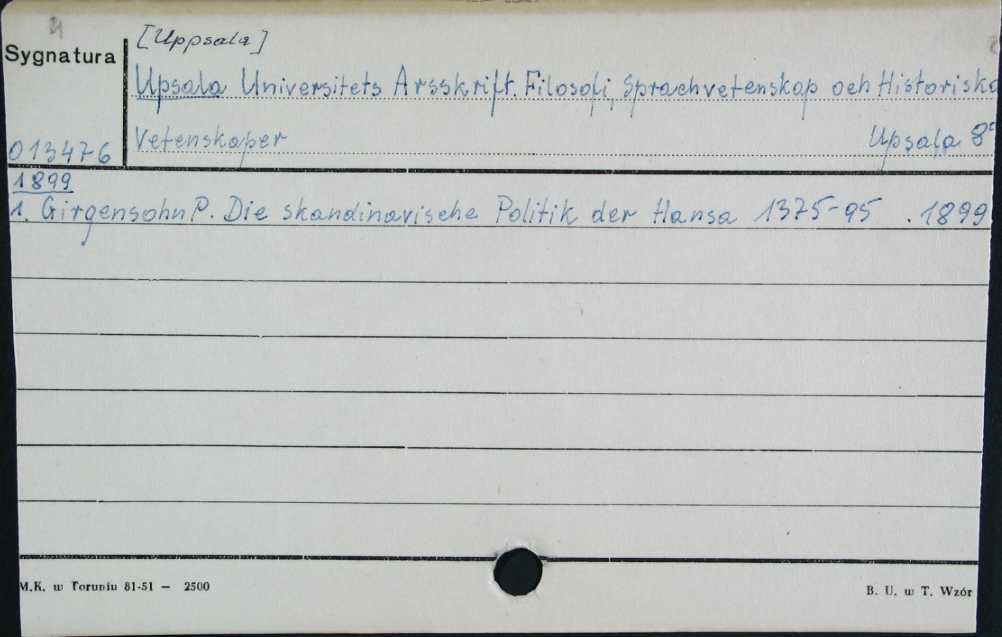 [Uppsala]
Sygnatura
Upsala Universitets Arsskrift. Filosofi, Sprachvetenskap och Historiska
013476 Vetenskaper Upsala 8°
1899
1. Girgensohn P. Die skandinavische Politik der Hansa 1375-95 . 1899
M.K. w Toruniu 81-51 — 2500 B. U. w T. Wzór